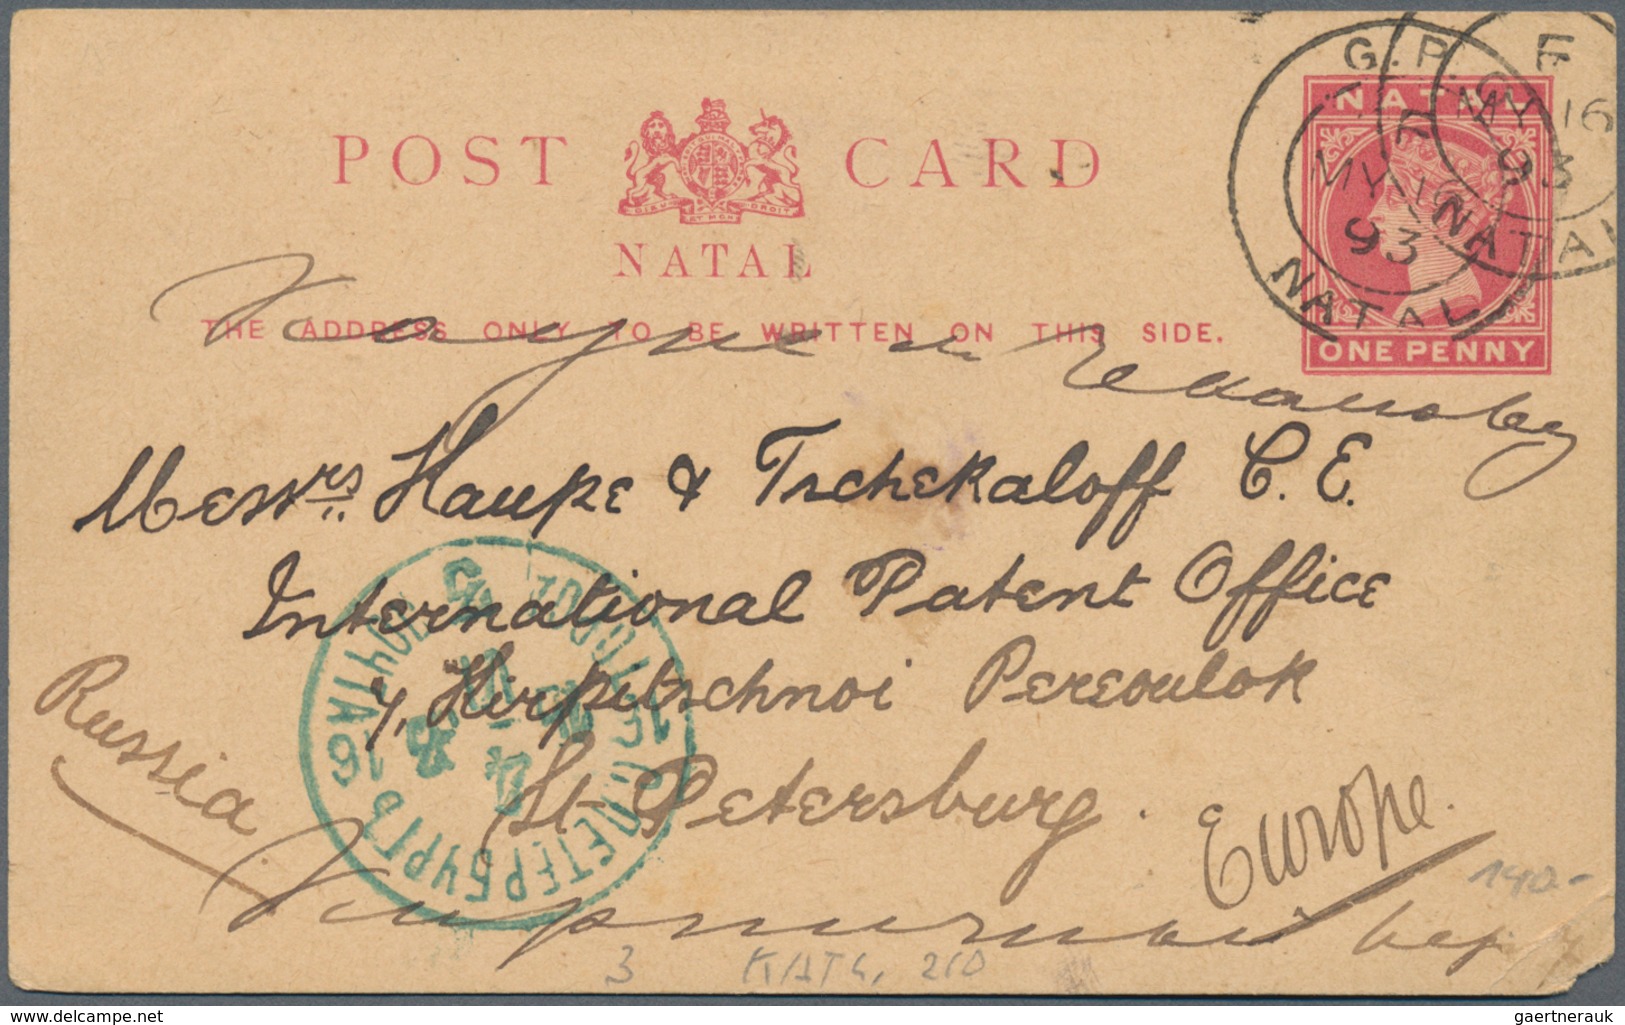 G.P.O.
MY 16
93
NATAL
F
MY 16
93
NATAL
NATAL
ONE PENNY
POST CARD
DIEU ET MON DROIT
NATAL
THE ADDRESS ONLY TO BE WRITTEN ON THIS SIDE.
Messrs. Haupe & Tscheкaloff C. E.
International Patent Office
4, Kirpitschnoi Pereoulok
St Petersburg.
Russia
Europe.
С. ПЕТЕРБУРГЪ
ПОЧТА
140-
3 KATG. 210
www.delcampe.net
gaertnerauk